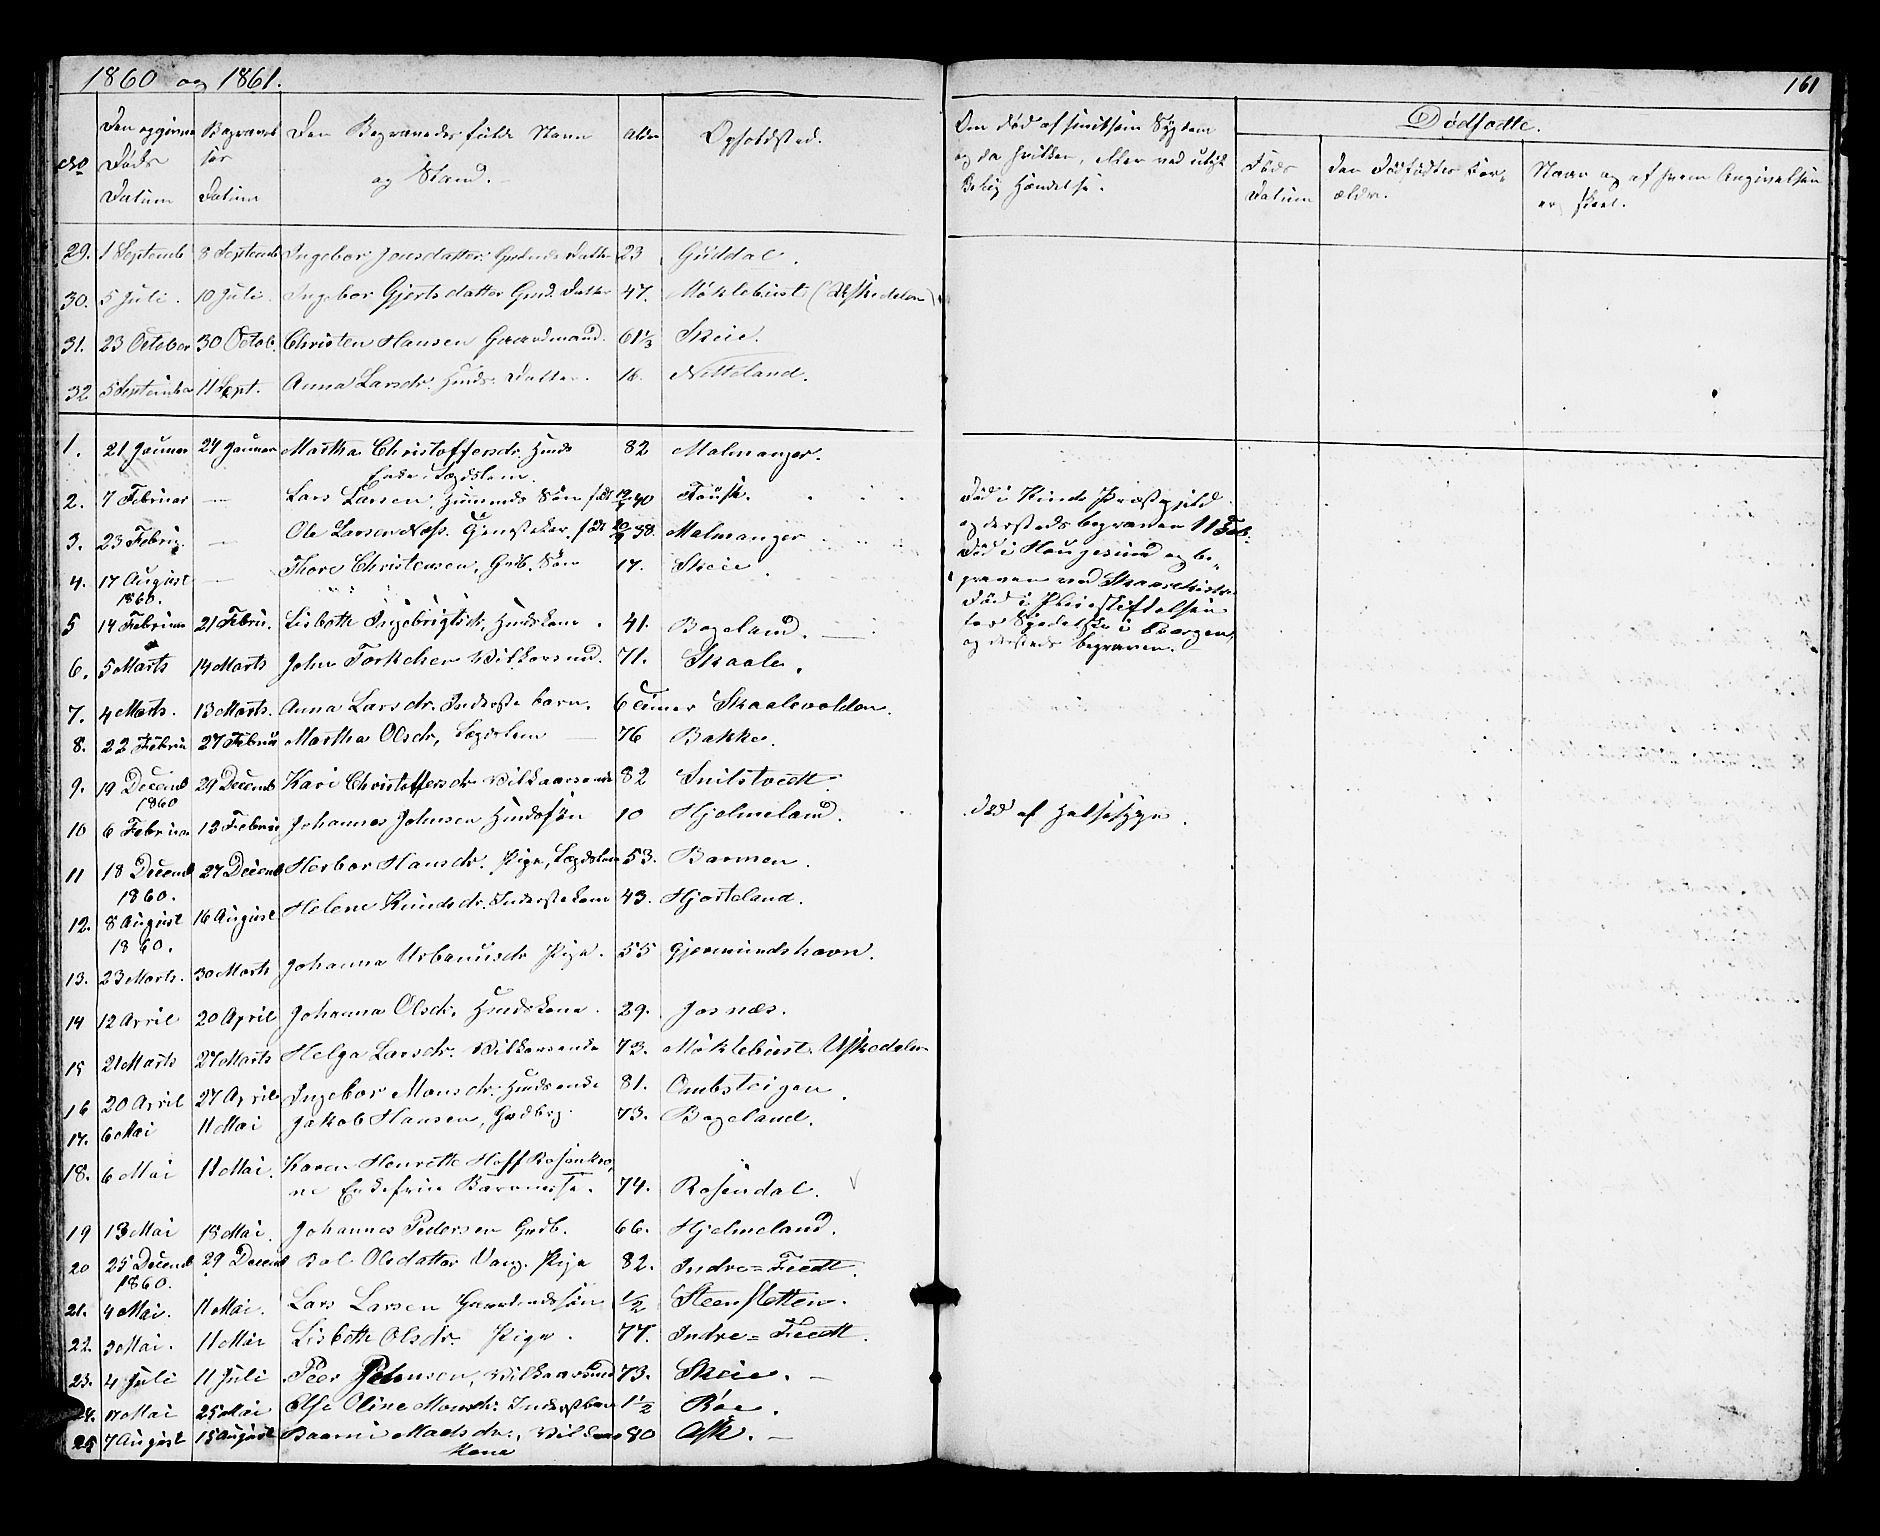 1860 og 1861.
161
No
Den opgivne Døds Datum
Begravelses Datum
Den Begravedes fulde Navn og Stand.
Alder
Opholdsted.
Om død af smitsom Sygdom og da hvilken, eller ved
Hændelse.
Dødfødte.
Føds Datum
Den Dødfødtes Forældre.
Navn og af hvem Angivelsen er skeet.
29. 1 Septemb 8 Septemb Ingebor Jonsdatter Datter 23 Guddal.
30. 5 Juli. 10 Juli. Ingebor Gjertsdatter Grd. Datter 47. Møklebust (Uskedalen)
31. 23 October 30 Octob. Christen Hansen Gaardmand. 61 1/3 Skeie.
32 5 September 11 Sept. Anna Larsdr. Husds. Datter. 18. Netteland.
1. 21 Januar 24 Januar Martha Christoffersdr. Husds
Enke, Lægdslem. 82 Malmanger.
2. 7 Februar — Lars Larsen, Husmands Søn født 12/4 40 Fousk.
Død i Kinds Præstegjeld
og dersteds begraven 11 Feb.
3. 23 Febru. — Ole Larsen Næss. født 20/9 38. Malmanger
Død i Haugesund og be-
graven ved Skaare Kirke
4. 17 August
1860. — Thore Christensen, Grb. Søn 17. Skeie
Død i Pleiestiftelsen
for Spedalske i Bergen
og dersteds begraven.
5 14 Februar 21 Febru. Lisbette Ingebrigtsdr. Husdskone. 41. Bogeland.
6. 5 Marts 14 Marts John Torkelsen Vilkorsmd. 71. Skaale.
7. 4 Marts. 13 Marts. Anna Larsdr. Inderste barn. 6 Timer Skaalevolden.
8. 22 Febru 27 Febru Martha Olsdr, Lægdslem — 76 Bakke.
9. 19 Decemb
1860 29 Decemb Kari Christoffersdr Vilkaarsenke 82 Snilstvedt.
10 6 Februar 13 Februa Johannes Johnsen Husdssøn 10 Hjelmeland.
Død af Halssyge.
11 18 Decemb
1860. 27 Decemb Herbor Hansdr. Pige, Lægdslem 53. Barmen.
12. 8 August
1860. 16 August Helene Knudsdr. Inderstekone 43. Hjorteland.
13. 23 Marts. 30 Marts Johanna Urbanusdr Pige. 55 Gjermundshavn.
14 12 April 20 April Johanna Olsdr, Husdskone. 29. Josnæs.
15 21 Marts 27 Marts Helga Larsdr. Vilkorsenke 73. Møklebust, Uskedalen
16 20 April 27 April. Ingebor Monsdr. Husdsenke 81. Ombsteigen.
17. 6 Mai 11 Mai Jakob Hansen, Grdbrg. 73. Bogeland.
18. 6 Mai 11 Mai. Karen Henrette Hoff Rosenkro-
ne Enkefrue Baronesse. 74. Rosendal.
19 13 Mai 18 Mai. Johannes Pedersen Grdb. 66. Hjelmeland.
20 25 Decemb
1860. 29 Decemb Bol Olsdatter Vang. Pige 82. Indre=Tvedt.
21. 4 Mai. 11 Mai. Lars Larsen Gaardmdssøn 1/2 Steensletten.
22. 3 Mai. 11 Mai Lisbette Olsdr. Pige. 77. Indre=Tvedt.
23. 4 Juli 11 Juli Peer Johnsen, Vilkaarsmd 73. Skeie. —
24. 17 Mai 25 Mai Else Oline Monsdr. Inderstbarn 1 1/2 Røe.
25 7 August 15 August Baarni Madsdr., Vilkaars
kone 80 Ask. —